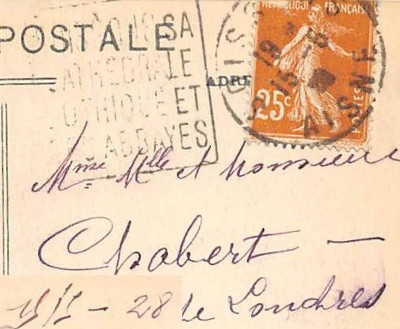 POSTALE
SA
CATHEDRALE
GOTHIQUE ET
ABBAYES
ADRE
REPUBLIQUE FRANÇAISE
25c
POSTES
AISNE
Mme Mlle et Monsieur
Chabert —
28 de Londres